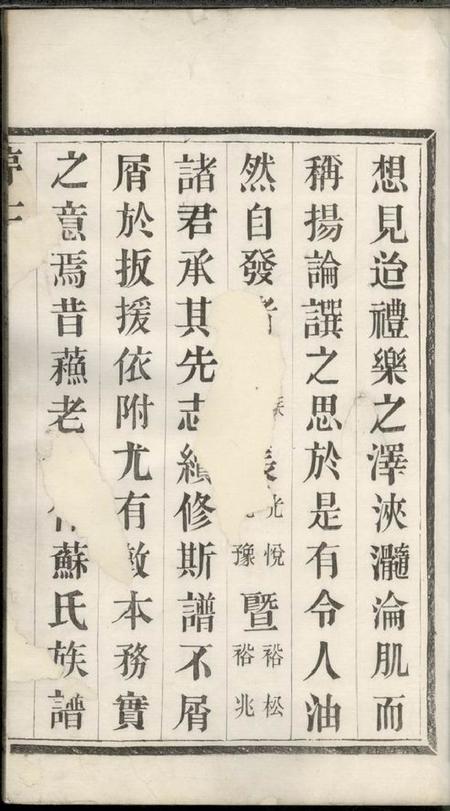 想見迨禮樂之澤浹瀡淪肌而
稱揚論譔之思於是有令人油
然自發者長光悅豫暨裕松裕兆
諸君承其先志纘修斯譜不屑
屑於扳援依附尤有敦本務實
之意焉昔蘓老作蘇氏族譜